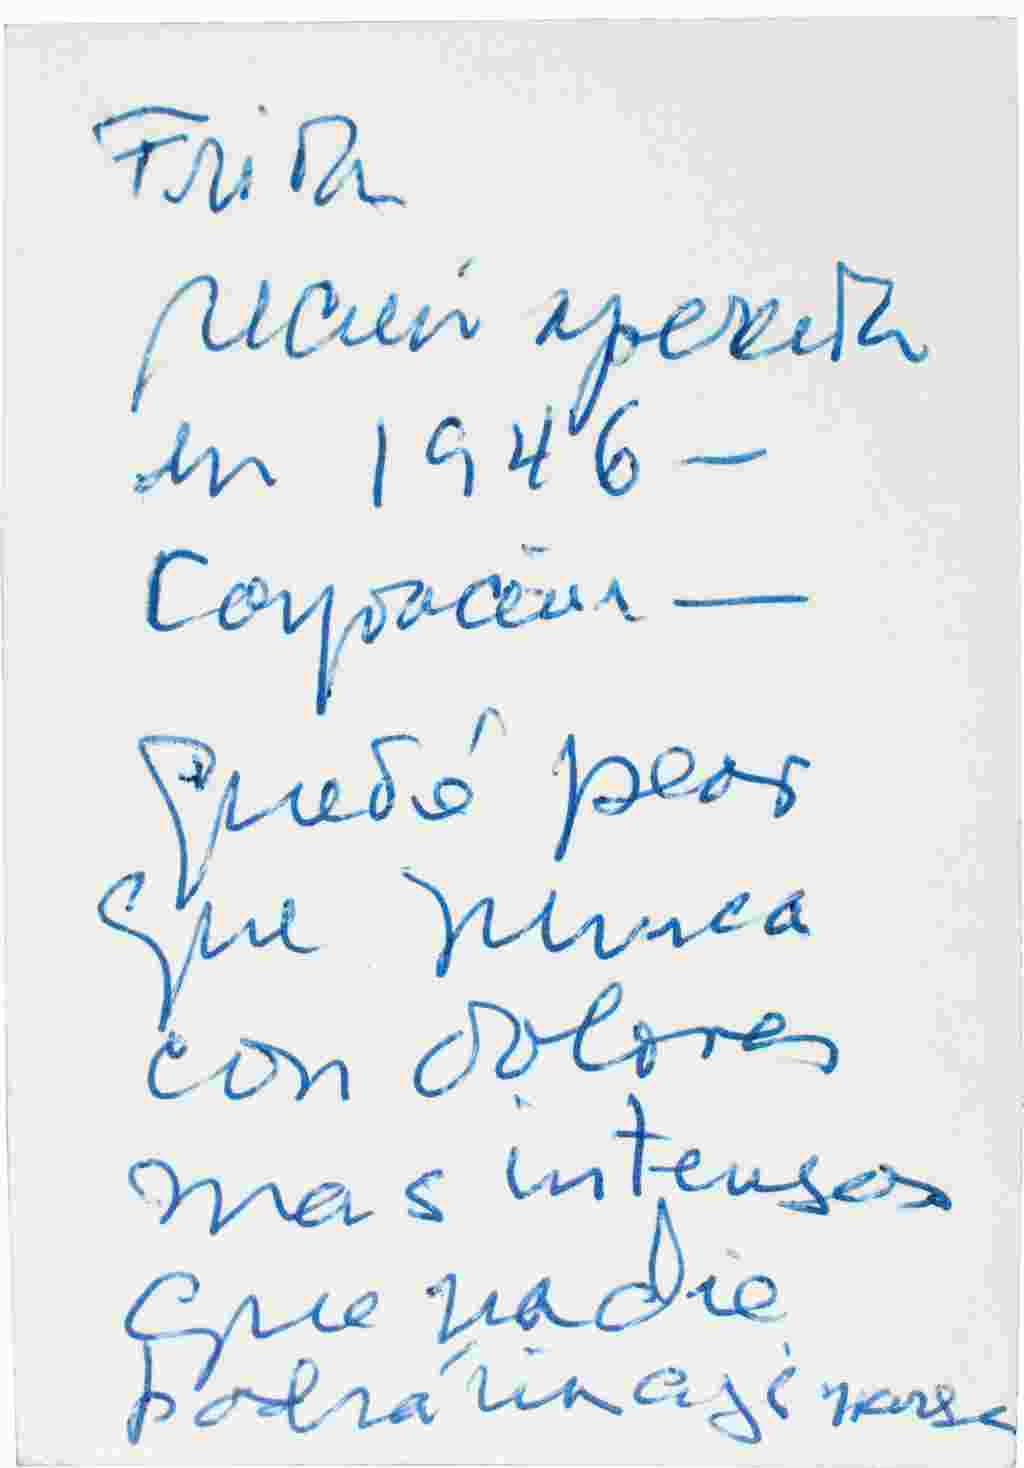 Frida
recién operada
en 1946 –
Coyoacán —
Quedó peor
que nunca
con dolores
mas intensos
que nadie
podrá imaginarse